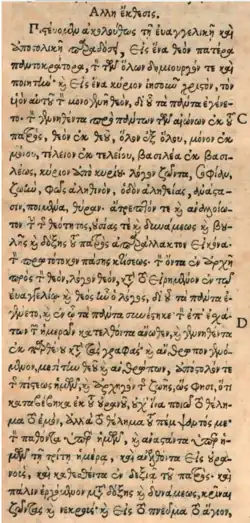 Ἄλλη ἔκθεσις.
Πιστεύομεν ἀκολούθως τῇ εὐαγγελικῇ καὶ
ἀποστολικῇ παραδόσει, Εἰς ἕνα θεὸν πατέρα
παντοκράτορα, τὸν τῶν ὅλων δημιουργόν τε καὶ
ποιητήν· καὶ Εἰς ἕνα κύριον ἰησοῦν χριστὸν, τὸν
υἱὸν αὐτοῦ τὸν μονογενῆ θεὸν, δι' οὗ τὰ πάντα ἐγένε-
το· τὸν γεννηθέντα πρὸ πάντων τῶν αἰώνων ἐκ τοῦ C
πατρὸς, θεὸν ἐκ θεοῦ, ὅλον ἐξ ὅλου, μόνον ἐκ
μόνου, τέλειον ἐκ τελείου, βασιλέα ἐκ βασι-
λέως, κύριον ἀπὸ κυρίου· λόγον ζῶντα, σοφίαν,
ζωὴν, φῶς ἀληθινὸν, ὁδὸν ἀληθείας, ἀνάστα-
σιν, ποιμένα, θύραν· ἄτρεπτόν τε καὶ ἀναλλοίω-
τον· τὴν τῆς θεότητος, οὐσίας τε καὶ δυνάμεως καὶ βου-
λῆς καὶ δόξης τοῦ πατρὸς ἀπαράλλακτον εἰκόνα·
τὸν πρωτότοκον πάσης κτίσεως· τὸν ὄντα ἐν ἀρχῇ
πρὸς τὸν θεὸν, λόγον θεὸν, κατὰ τὸ εἰρημένον ἐν τῷ
εὐαγγελίῳ· καὶ θεὸς ἦν ὁ λόγος, δι' οὗ τὰ πάντα ἐ-
γένετο, καὶ ἐν ᾧ τὰ πάντα συνέστηκε· τὸν ἐπ' ἐσχά- D
των τῶν ἡμερῶν κατελθόντα ἄνωθεν, καὶ γεννηθέντα
ἐκ παρθένου κατὰ τὰς γραφὰς· καὶ ἄνθρωπον γενό-
μενον, μεσίτην θεοῦ καὶ ἀνθρώπων, ἀπόστολόν τε
τῆς πίστεως ἡμῶν, καὶ ἀρχηγὸν τῆς ζωῆς, ὥς φησι, ὅτι
καταβέβηκα ἐκ τοῦ οὐρανοῦ, οὐχ ἵνα ποιῶ τὸ θέλη-
μα τὸ ἐμὸν, ἀλλὰ τὸ θέλημα τοῦ πέμψαντός με·
τὸν παθόντα ὑπὲρ ἡμῶν, καὶ ἀναστάντα ὑπὲρ ἡ-
μῶν τῇ τρίτῃ ἡμέρᾳ, καὶ ἀνελθόντα εἰς οὐρα-
νοὺς, καὶ καθεσθέντα ἐν δεξιᾷ τοῦ πατρὸς· καὶ
πάλιν ἐρχόμενον μετὰ δόξης καὶ δυνάμεως, κρῖναι
ζῶντας καὶ νεκρούς· καὶ Εἰς τὸ πνεῦμα τὸ ἅγιον,